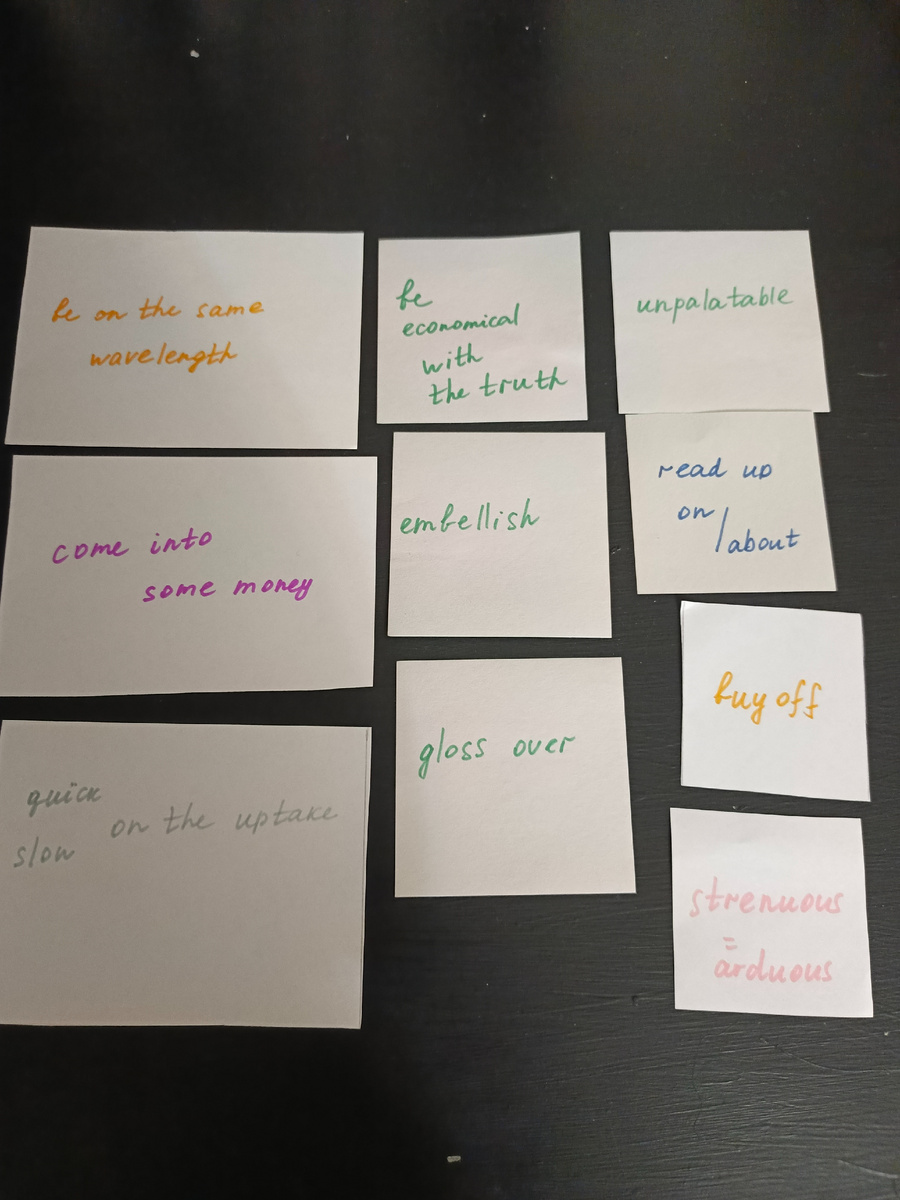 be on the same
wavelength
come into
some money
quick
slow
on the uptake
be
economical
with
the truth
embellish
gloss over
unpalatable
read up
on/
about
buy off
strenuous
=
arduous